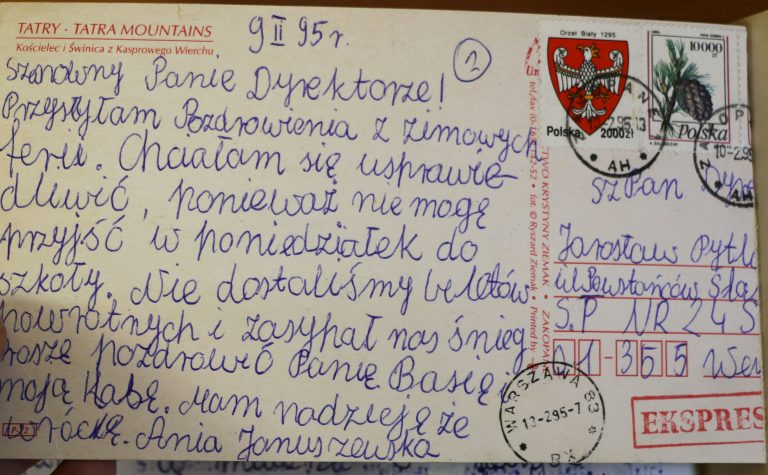 TATRY · TATRA MOUNTAINS
Kościelec i Świnica z Kasprowego Wierchu
9 II 95 r.
2
Szanowny Panie Dyrektorze!
Przysyłam Pozdrowienia z zimowych
ferii. Chciałam się usprawie-
dliwić, ponieważ nie mogę
przyjść w poniedziałek do
szkoły. Nie dostaliśmy biletów
powrotnych i zasypał nas śnieg
proszę pozdrowić Panię Basię i
moją klasę. Mam nadzieję że
wrócę. Ania Januszewska
Orzeł Biały 1295
Polska 2000 zł
10000 zł
Polska
AH
10-2.95
AH
SzPan Dyr
Jarosław Pytl
ul. Powstańców Śla
S.P NR 24S
01-355 War
WARSZAWA 83
13-2.95-7
EKSPRES
TWO KRYSTYNY ZIEMAK • ZAKOPA
• Fot. © Ryszard Ziemak • Printed by